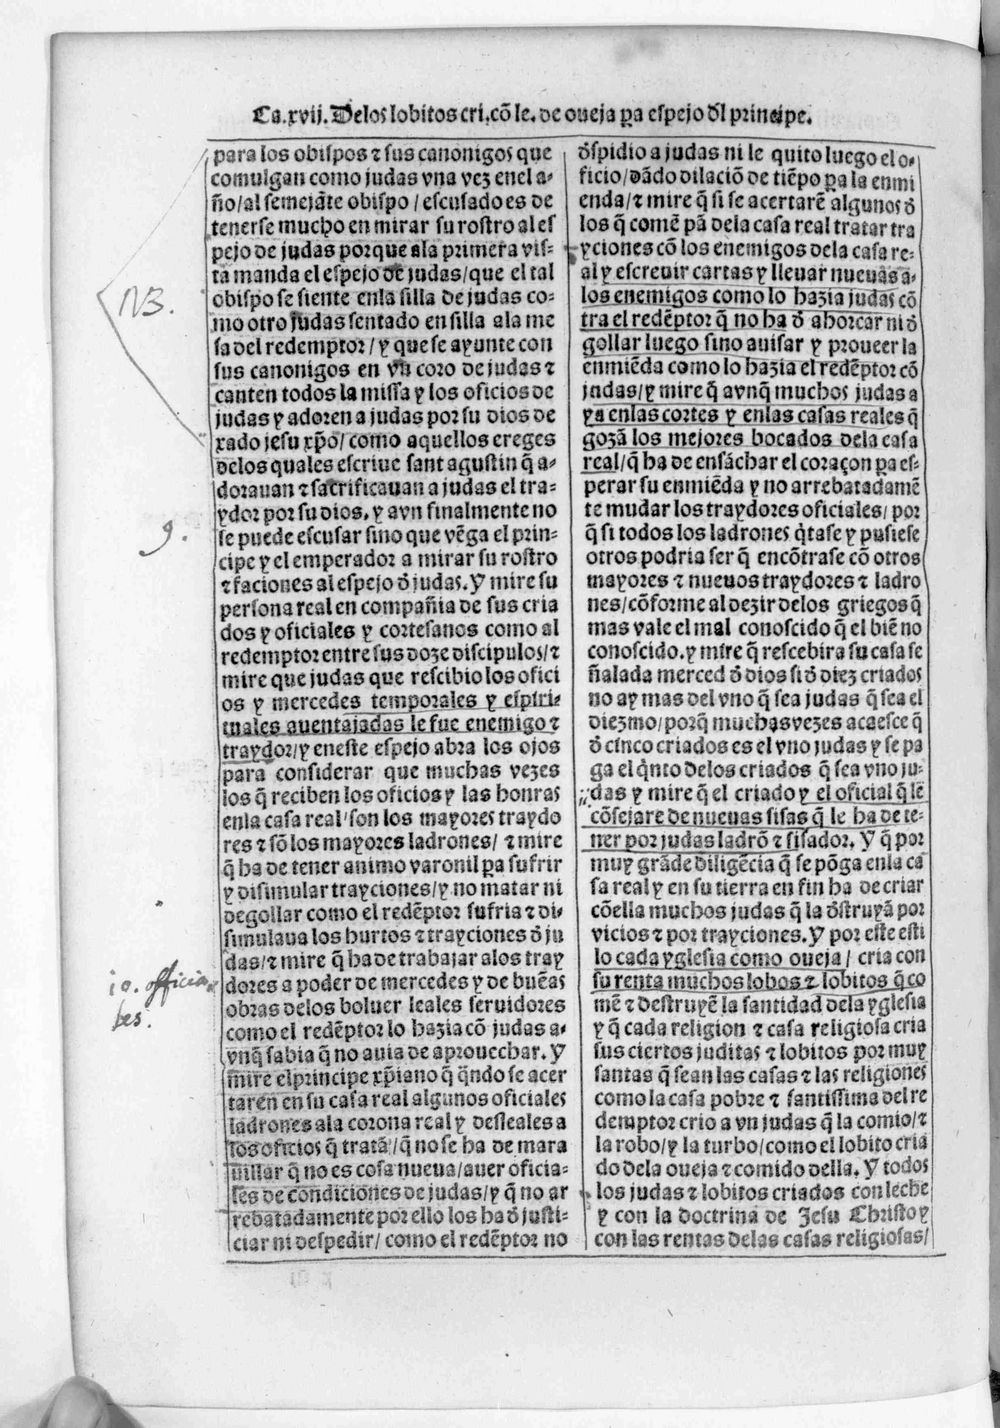 Ca.xvij. Delos lobitos cri.cõ le. de oueja pa espejo ďl principe.
para los obispos ⁊ sus canonigos que
comulgan como judas vna vez enel a-
ño/al semejãte obispo/escusado es de
tenerse mucho en mirar su rostro al es
pejo de judas porque ala primera vis-
ta manda el espejo de judas/que el tal
obispo se siente enla silla de judas co-
mo otro judas sentado en silla ala me
sa del redemptor/y que se ayunte con
sus canonigos en vn coro de judas ⁊
canten todos la missa y los oficios de
judas y adoren a judas por su dios de
xado jesu xp̃o/como aquellos ereges
delos quales escriue sant agustin q̃ a-
dorauan ⁊ sacrificauan a judas el tra-
ydor por su dios. y avn finalmente no
se puede escusar sino que vẽga el prin-
cipe y el emperador a mirar su rostro
⁊ faciones al espejo ď judas. Y mire su
persona real en compañia de sus cria
dos y oficiales y cortesanos como al
redemptor entre sus doze discipulos/⁊
mire que judas que rescibio los ofici
os y mercedes temporales y espiri-
tuales auentajadas le fue enemigo ⁊
traydor/y eneste espejo abra los ojos
para considerar que muchas vezes
los q̃ reciben los oficios y las honras
enla casa real/son los mayores traydo
res ⁊ sõ los mayores ladrones/⁊ mire
q̃ ha de tener animo varonil pa sufrir
y disimular trayciones/y no matar ni
degollar como el redẽptor sufria ⁊ di-
simulaua los hurtos ⁊ trayciones ď ju
das/⁊ mire q̃ ha de trabajar alos tray
dores a poder de mercedes y de buẽas
obras delos boluer leales seruidores
como el redẽptor lo hazia cõ judas a-
vnq̃ sabia q̃ no auia de aprouechar. Y
mire el principe xp̃iano q̃ q̃ndo se acer
taren en su casa real algunos oficiales
ladrones ala corona real y desleales a
los oficios q̃ tratã/q̃ no se ha de mara
uillar q̃ no es cosa nueua/auer oficia-
les de condiciones de judas/y q̃ no ar
rebatadamente por ello los ha ď justi-
ciar ni despedir/como el redẽptor no
ďspidio a judas ni le quito luego el o-
ficio/dãdo dilaciõ de tiẽpo pa la enmi
enda/⁊ mire q̃ si se acertarẽ algunos ď
los q̃ comẽ pã dela casa real tratar tra
yciones cõ los enemigos dela casa re-
al y escreuir cartas y lleuar nueuas a-
los enemigos como lo hazia judas cõ
tra el redẽptor q̃ no ha ď ahorcar ni ď
gollar luego sino auisar y proueer la
enmiẽda como lo hazia el redẽptor cõ
judas/y mire q̃ avnq̃ muchos judas a
ya enlas cortes y enlas casas reales q̃
gozã los mejores bocados dela casa
real/q̃ ha de ensãchar el coraçon pa es-
perar su enmiẽda y no arrebatadamẽ
te mudar los traydores oficiales/por
q̃ si todos los ladrones q̃tase y pusiese
otros podria ser q̃ encõtrase cõ otros
mayores ⁊ nueuos traydores ⁊ ladro
nes/cõforme al dezir delos griegos q̃
mas vale el mal conoscido q̃ el biẽ no
conoscido. y mire q̃ rescebira su casa se
ñalada merced ď dios si ď diez criados
no ay mas del vno q̃ sea judas q̃ sea el
diezmo/porq̃ muchas vezes acaesce q̃
ď cinco criados es el vno judas y se pa
ga el q̃nto delos criados q̃ sea vno ju-
das y mire q̃ el criado y el oficial q̃ le
cõsejare de nueuas sisas q̃ le ha de te-
ner por judas ladrõ ⁊ sisador. Y q̃ por
muy grãde diligẽcia q̃ se põga enla ca
sa real y en su tierra en fin ha de criar
cõella muchos judas q̃ la ďstruyã por
vicios ⁊ por trayciones. Y por este esti
lo cada yglesia como oueja/cria con
su renta muchos lobos ⁊ lobitos q̃ co
mẽ ⁊ destruyẽ la santidad dela yglesia
y q̃ cada religion ⁊ casa religiosa cria
sus ciertos juditas ⁊ lobitos por muy
santas q̃ sean las casas ⁊ las religiones
como la casa pobre ⁊ santissima del re
demptor crio a vn judas q̃ la comio/⁊
la robo/y la turbo/como el lobito cria
do dela oueja ⁊ comido della. Y todos
los judas ⁊ lobitos criados con leche
y con la doctrina de Jesu Christo y
con las rentas delas casas religiosas/
NB.
9.
10. officia
les.